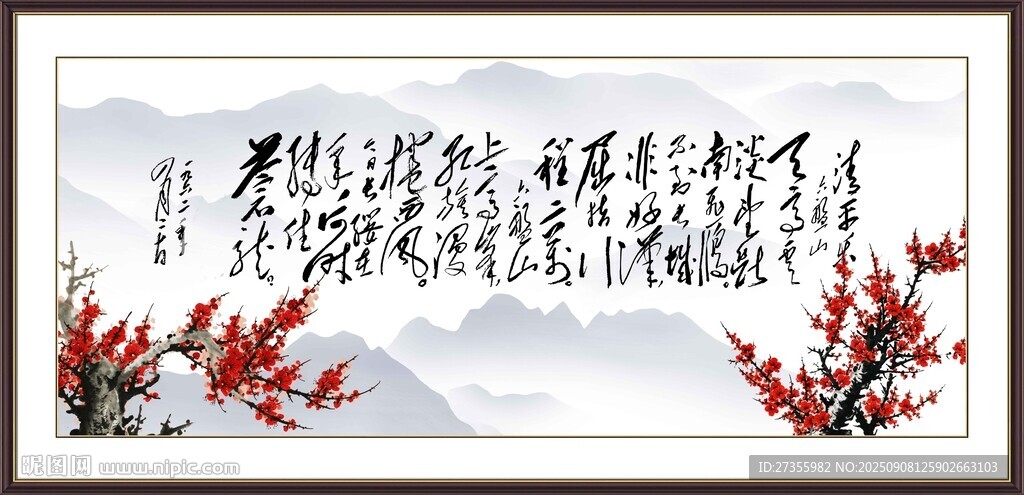 清平乐
六盘山
天高云
淡望断
南飞雁。
不到长城
非好漢
屈指行
程二萬。
六盘山
上高峰
红旗漫
捲西風。
今日长缨在
手何时
缚住
蒼龙。
一九六二年
四月二十日
昵图网 www.nipic.com
ID:27355982 NO:20250908125902663103